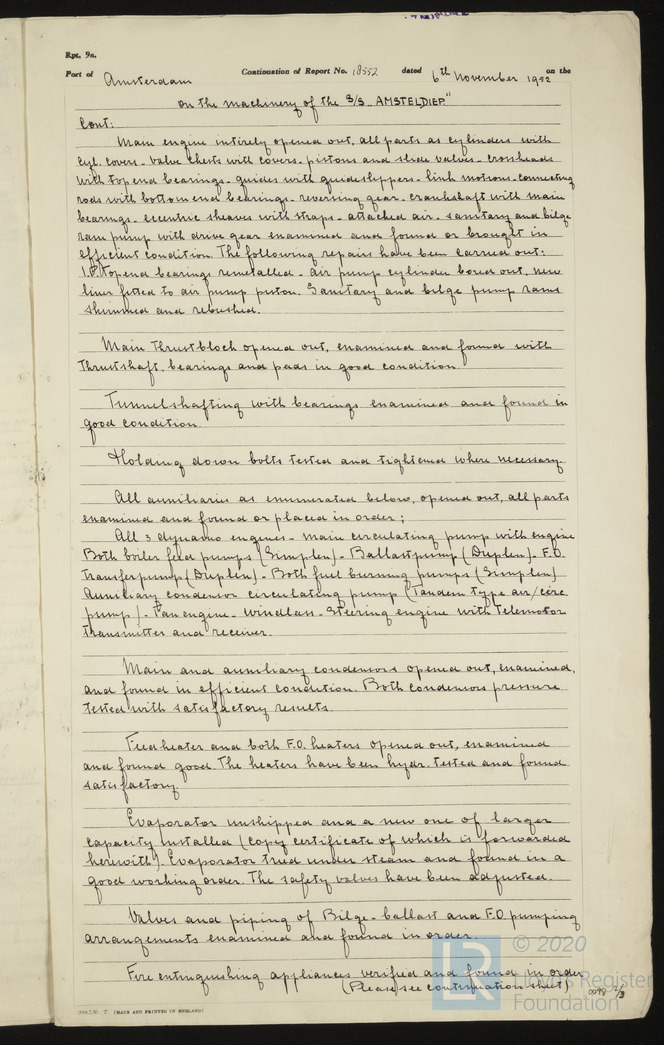 Rpt. 9a.
Port of Amsterdam Continuation of Report No. 18552 dated 6th November 1952 on the
on the machinery of the S/S "AMSTELDIEP"
Cont:
Main engine entirely opened out, all parts as cylinders with
cyl. covers - valve chests with covers - pistons and slide valves - crossheads
with top end bearings - guides with guideslippers - link motions - connecting
rods with bottom end bearings - reversing gear - crankshaft with main
bearings - eccentric sheaves with straps - attached air - sanitary and bilge
ram pump with drive gear examined and found or brought in
efficient condition. The following repairs have been carried out:
I.P. topend bearings remetalled - air pump cylinder bored out, new
liner fitted to air pump piston. Sanitary and bilge pump rams
skimmed and rebushed.
Main Thrustblock opened out, examined and found with
Thrustshaft, bearings and pads in good condition.
Tunnelshafting with bearings examined and found in
good condition
Holding down bolts tested and tightened where necessary.
All auxiliaries as enumerated below, opened out, all parts
examined and found or placed in order;
All 3 dynamo engines - main circulating pump with engine
Both boiler feed pumps (Simplex) - Ballastpump (Duplex) - F.O.
Transferpump (Duplex) - Both fuel burning pumps (Simplex)
Auxiliary condensor circulating pump (Tandem type air/circ
pump) - Fan engine - windlass - Steering engine with Telemotor
transmitter and receiver.
Main and auxiliary condensors opened out, examined,
and found in efficient condition. Both condensors pressure
tested with satisfactory results.
Feedheater and both F.O. heaters opened out, examined
and found good. The heaters have been hydr. tested and found
satisfactory.
Evaporator unshipped and a new one of larger
capacity installed (copy certificate of which is forwarded
herewith). Evaporator tried under steam and found in a
good working order. The safety valves have been adjusted.
Valves and piping of Bilge - ballast and F.O. pumping
arrangements examined and found in order.
Fire extinguishing appliances verified and found in order
(Please see continuation sheet)
(MADE AND PRINTED IN ENGLAND)
LR © 2020
Lloyd's Register
Foundation